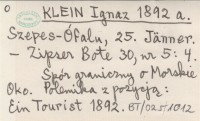 KLEIN Ignaz 1892 a.
Szepes-Ófalu, 25. Jänner.
- Zipser Bote 30, nr 5: 4.
Spór graniczny o Morskie
Oko. Polemika z pozycją:
Ein Tourist 1892.